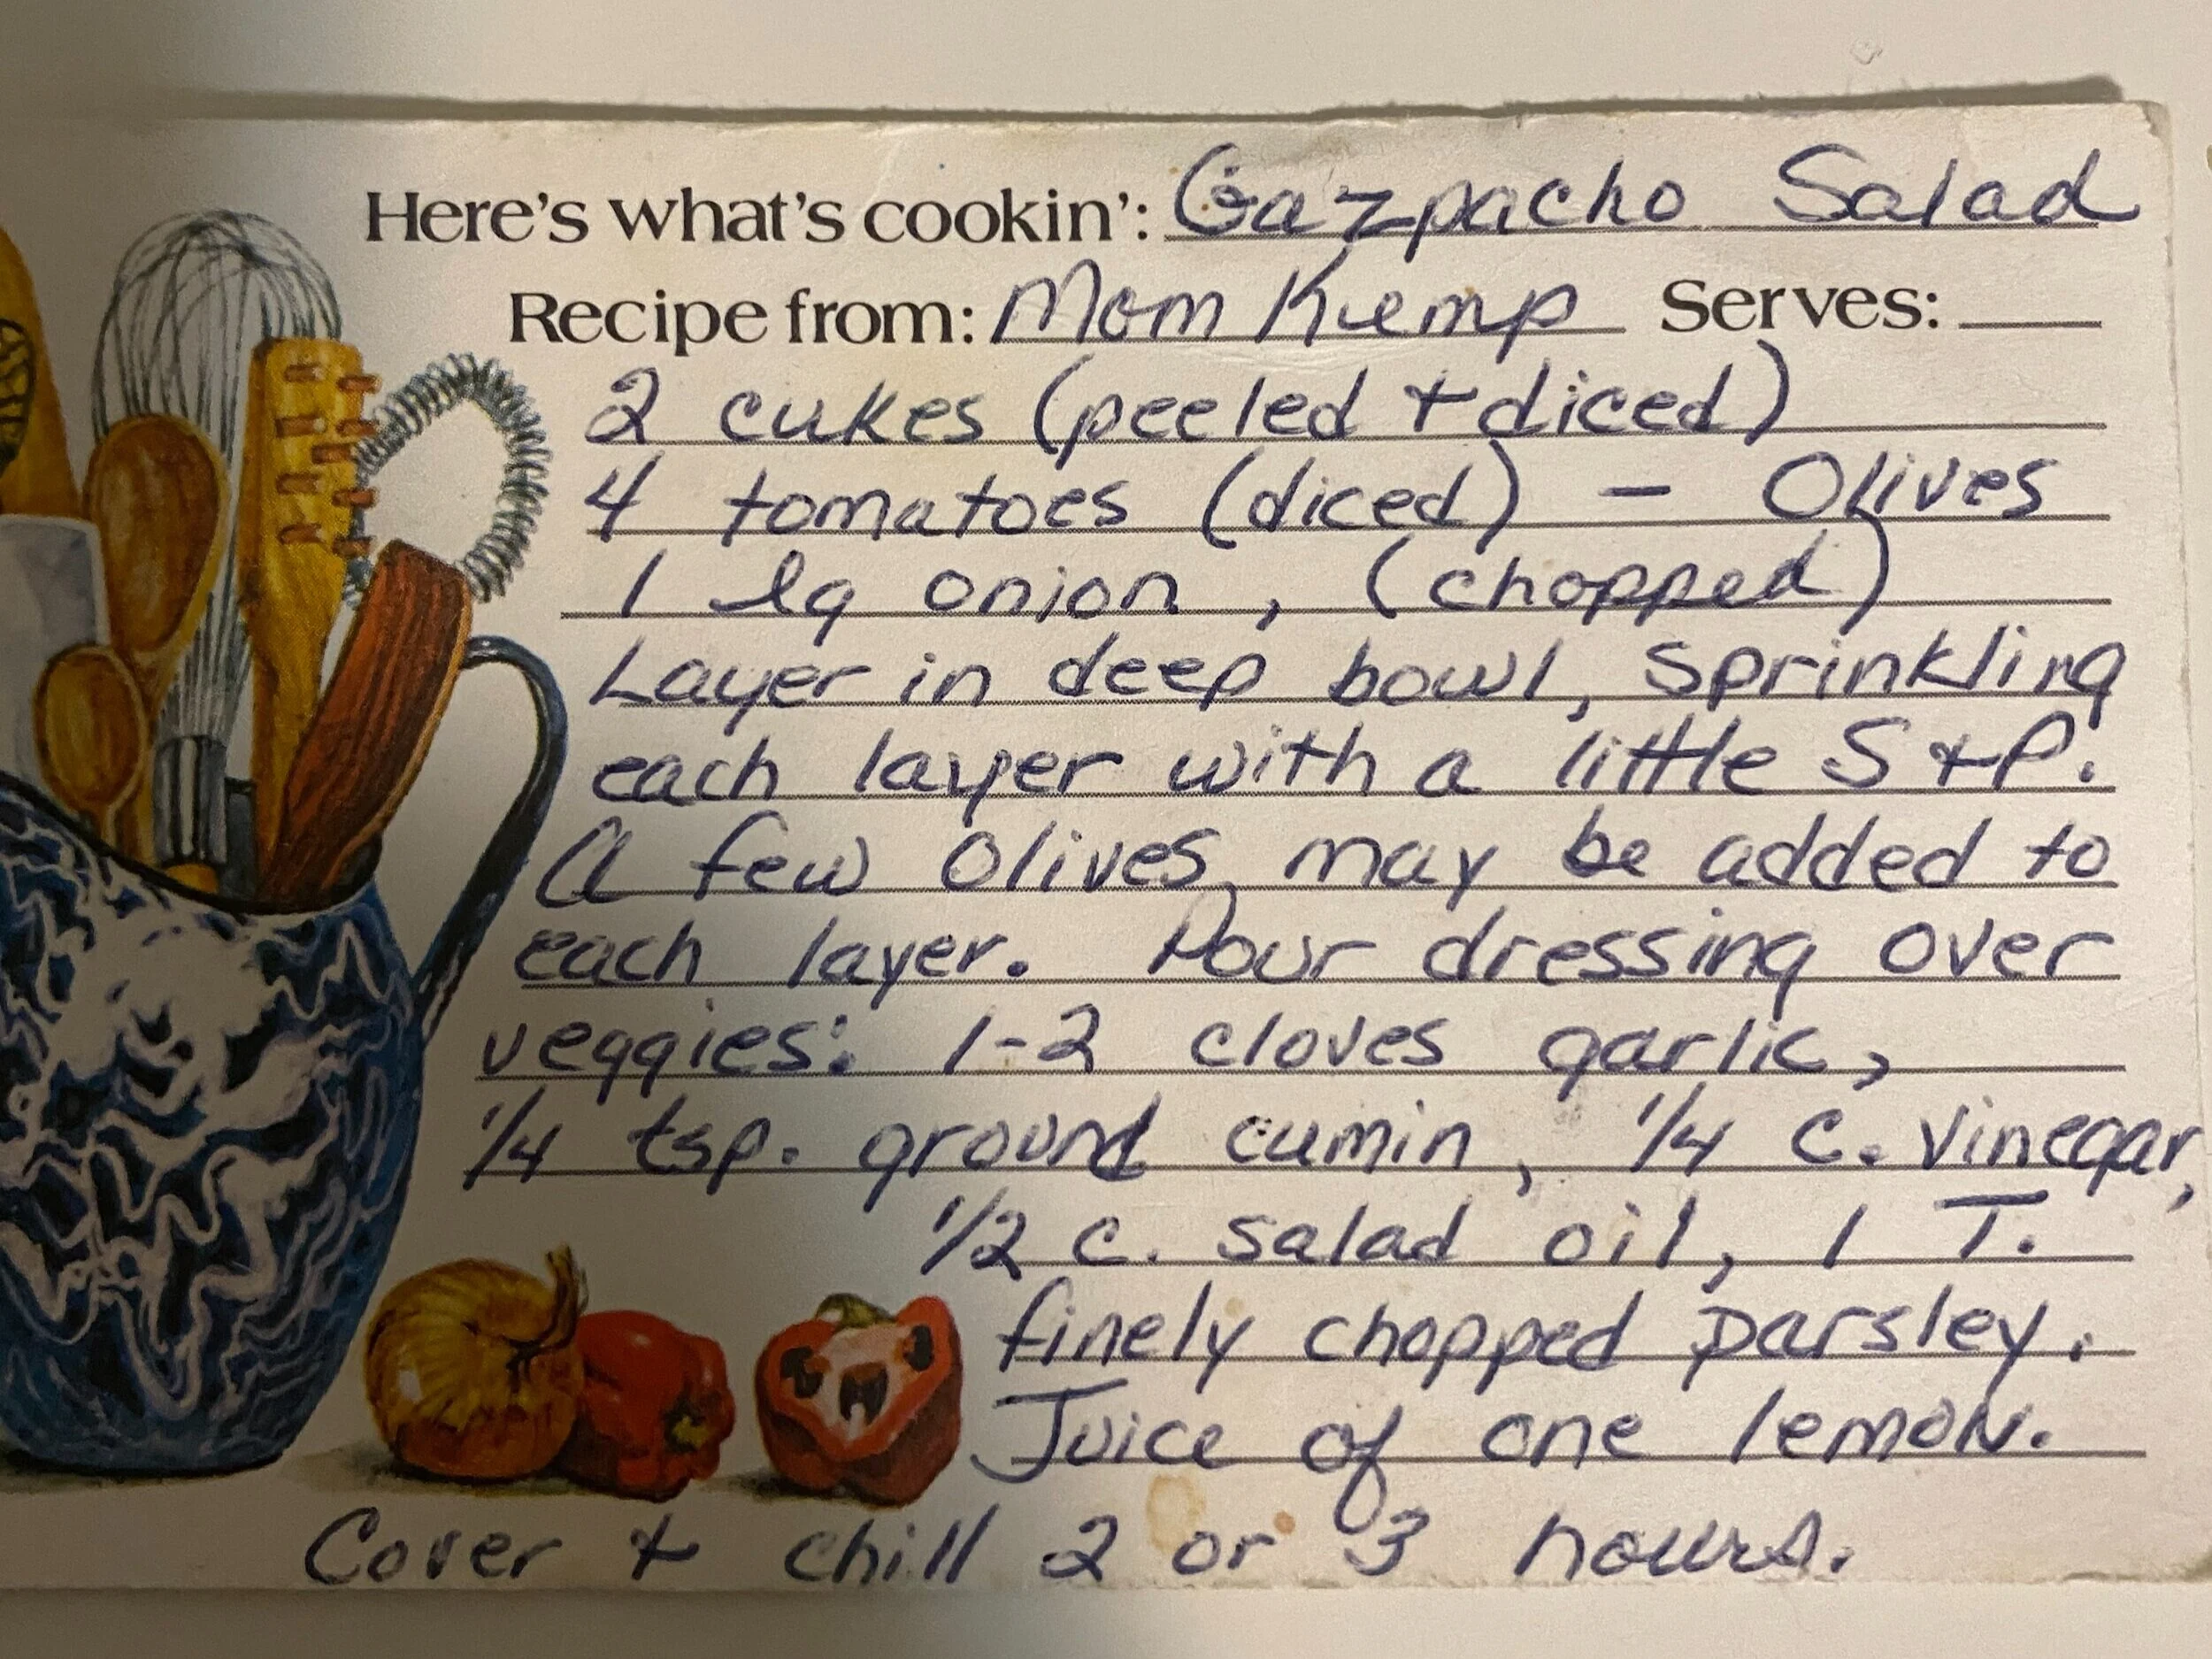 Here's what's cookin': Gazpacho Salad
Recipe from: Mom Kemp Serves:
2 cukes (peeled + diced)
4 tomatoes (diced) - Olives
1 lg onion, (chopped)
Layer in deep bowl, sprinkling
each layer with a little S + P.
A few olives may be added to
each layer. Pour dressing over
veggies: 1-2 cloves garlic,
1/4 tsp. ground cumin, 1/4 c. vinegar,
1/2 c. salad oil, 1 T.
finely chopped parsley.
Juice of one lemon.
Cover + chill 2 or 3 hours.